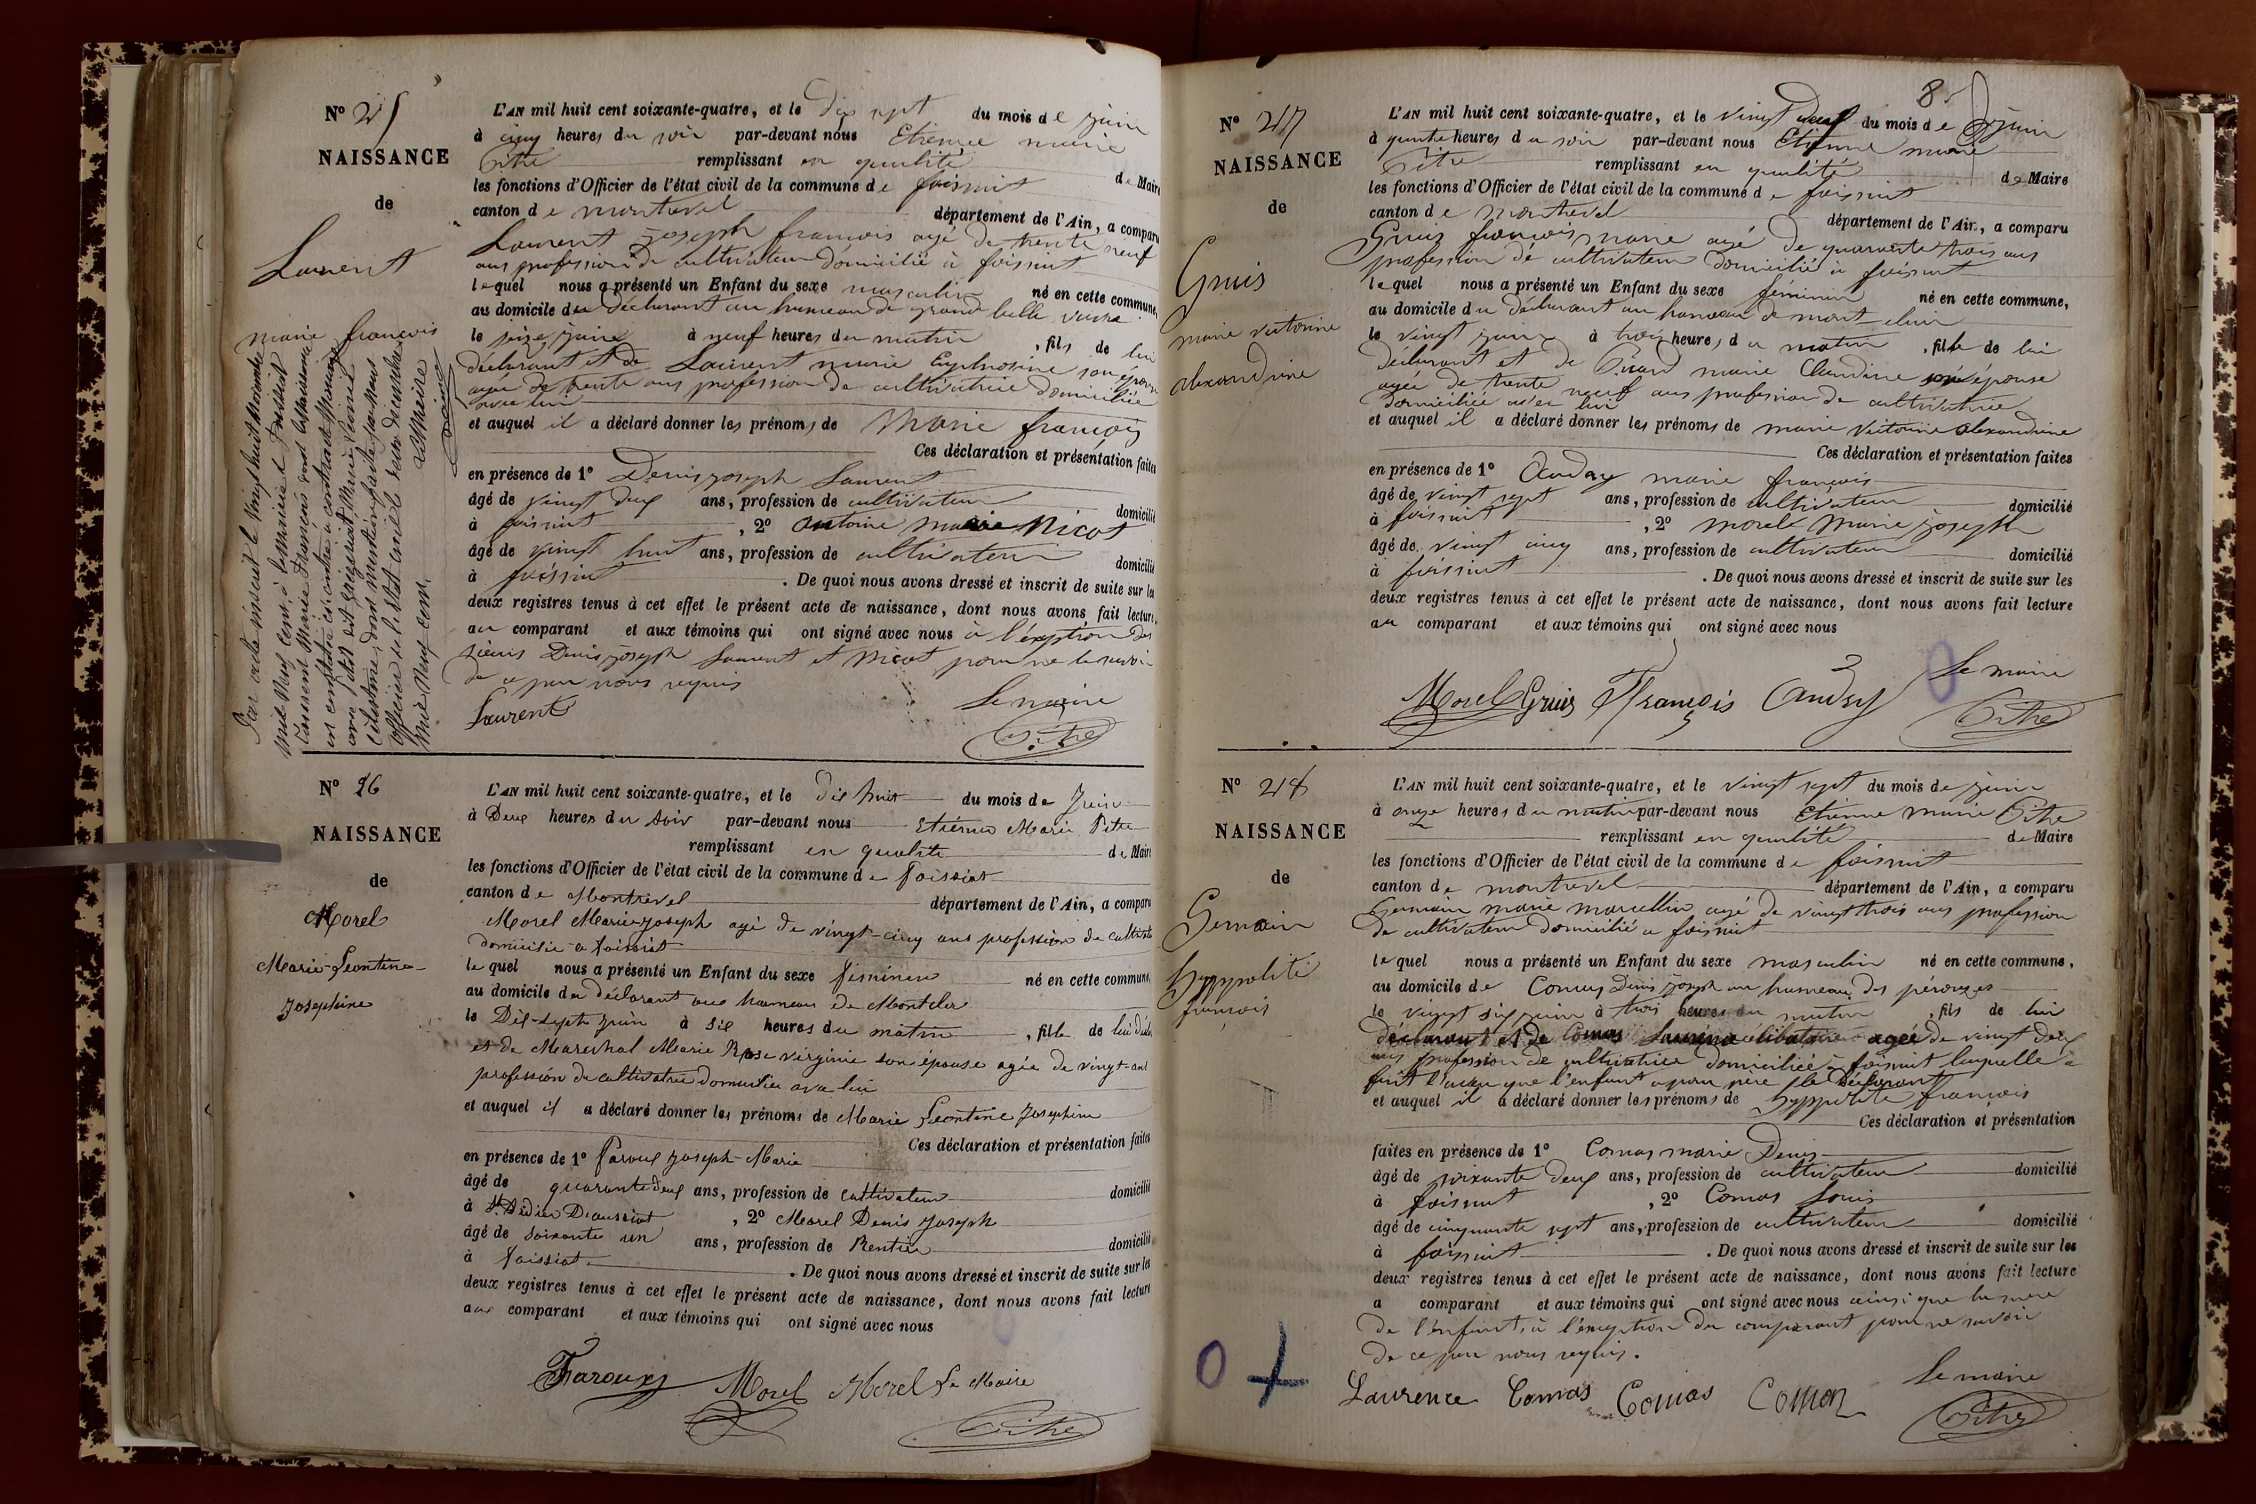 Nº 25
NAISSANCE
de
Laurent
marie françois
Par acte inscrit le vingt huit Novembre
mil neuf cent, à la mairie de Foissiat
Laurent Marie François
est contrat de mariage
avec
célestine, dont mention faite par nous
officier de l'état civil le deux décembre
mil neuf cent. Le Maire
L'AN mil huit cent soixante-quatre, et le dix sept du mois de juin
à cinq heures du soir par-devant nous Etienne marie
Pitre remplissant en qualité de Maire
les fonctions d'Officier de l'état civil de la commune de foissiat
canton de montrevel département de l'Ain, a comparu
Laurent joseph françois agé de trente neuf
ans profession de cultivateur domicilié à foissiat
lequel nous a présenté un Enfant du sexe masculin né en cette commune,
au domicile du déclarant au hameau de grand belle vavre
le seize juin à neuf heures du matin , fils de lui
déclarant et de Laurent marie Euphrosine son épouse
agée de trente ans profession de cultivatrice domiciliée
avec lui
et auquel il a déclaré donner les prénoms de Marie françois
Ces déclaration et présentation faites
en présence de 1º Denis joseph Laurent
âgé de vingt deux ans, profession de cultivateur domicilié
à foissiat , 2º antoine marie Nicot
âgé de vingt huit ans, profession de cultivateur domicilié
à foissiat . De quoi nous avons dressé et inscrit de suite sur les
deux registres tenus à cet effet le présent acte de naissance, dont nous avons fait lecture
au comparant et aux témoins qui ont signé avec nous à l'exeption des
sieurs Denis joseph Laurent et Nicot pour ne le savoir
de ce par nous requis
Laurent Le maire
Pitre
Nº 26
NAISSANCE
de
Morel
Marie-Leontine-
Josephine
L'AN mil huit cent soixante-quatre, et le dix huit du mois de Juin
à Deux heures du soir par-devant nous Etienne Marie Pitre
remplissant en qualité de Maire
les fonctions d'Officier de l'état civil de la commune de Foissiat
canton de Montrevel département de l'Ain, a comparu
Morel Marie-joseph agé de vingt-cinq ans profession de cultivateur
domicilié à Foissiat
lequel nous a présenté un Enfant du sexe féminin né en cette commune,
au domicile du déclarant au hameau de Montclair
le Dix-sept juin à six heures du matin , fille de lui décl
et de Marechal Marie Rose virginie son épouse agée de vingt-
profession de cultivatrice domiciliée avec lui
et auquel il a déclaré donner les prénoms de Marie Leontine Josephine
Ces déclaration et présentation faites
en présence de 1º Faroux Joseph-Marie
âgé de quarante deux ans, profession de cultivateur domicilié
à St Didier D'aussiat , 2º Morel Denis joseph
âgé de soixante un ans, profession de Rentier domicilié
à Foissiat . De quoi nous avons dressé et inscrit de suite sur les
deux registres tenus à cet effet le présent acte de naissance, dont nous avons fait lecture
au comparant et aux témoins qui ont signé avec nous
Faroux Morel Morel Le Maire
Pitre
Nº 27
NAISSANCE
de
Gruis
marie victorine
alexandrine
L'AN mil huit cent soixante-quatre, et le vingt deux du mois de juin
à quatre heures du soir par-devant nous Etienne marie
Pitre remplissant en qualité de Maire
les fonctions d'Officier de l'état civil de la commune de foissiat
canton de montrevel département de l'Ain, a comparu
Gruis françois marie agé de quarante trois ans
profession de cultivateur domicilié à foissiat
lequel nous a présenté un Enfant du sexe féminin né en cette commune,
au domicile du déclarant au hameau de mont clair
le vingt juin à trois heures du matin , fille de lui
déclarant et de marie Claudine son épouse
agée de trente neuf ans profession de cultivatrice
domiciliée avec lui
et auquel il a déclaré donner les prénoms de marie victorine alexandrine
Ces déclaration et présentation faites
en présence de 1º Andry marie françois
âgé de vingt sept ans, profession de cultivateur domicilié
à foissiat , 2º morel marie joseph
âgé de vingt cinq ans, profession de cultivateur domicilié
à foissiat . De quoi nous avons dressé et inscrit de suite sur les
deux registres tenus à cet effet le présent acte de naissance, dont nous avons fait lecture
au comparant et aux témoins qui ont signé avec nous
Le maire
Morel Gruis François Andry Pitre
Nº 28
NAISSANCE
de
Semain
hyppolite
françois
L'AN mil huit cent soixante-quatre, et le vingt sept du mois de juin
à onze heures du matin par-devant nous Etienne marie Pitre
remplissant en qualité de Maire
les fonctions d'Officier de l'état civil de la commune de foissiat
canton de montrevel département de l'Ain, a comparu
marie marcellin agé de vingt trois ans profession
de cultivateur domicilié à foissiat
lequel nous a présenté un Enfant du sexe masculin né en cette commune,
au domicile de Comas Denis joseph au hameau des pérouzes
le vingt six juin à trois heures du matin , fils de lui
déclarant et de Comas Laurence célibataire agée de vingt deux
ans profession de cultivatrice domiciliée à foissiat laquelle a
fait l'aveu que l'enfant a pour père le déclarant
et auquel il a déclaré donner les prénoms de hyppolite françois
Ces déclaration et présentation
faites en présence de 1º Comas marie Denis
âgé de soixante deux ans, profession de cultivateur domicilié
à foissiat , 2º Comas Louis
âgé de cinquante sept ans, profession de cultivateur domicilié
à foissiat . De quoi nous avons dressé et inscrit de suite sur les
deux registres tenus à cet effet le présent acte de naissance, dont nous avons fait lecture
a comparant et aux témoins qui ont signé avec nous ainsi que la mère
de l'enfant, à l'exception du comparant pour ne savoir
de ce par nous requis.
Le maire
Laurence Comas Comas Comas Pitre